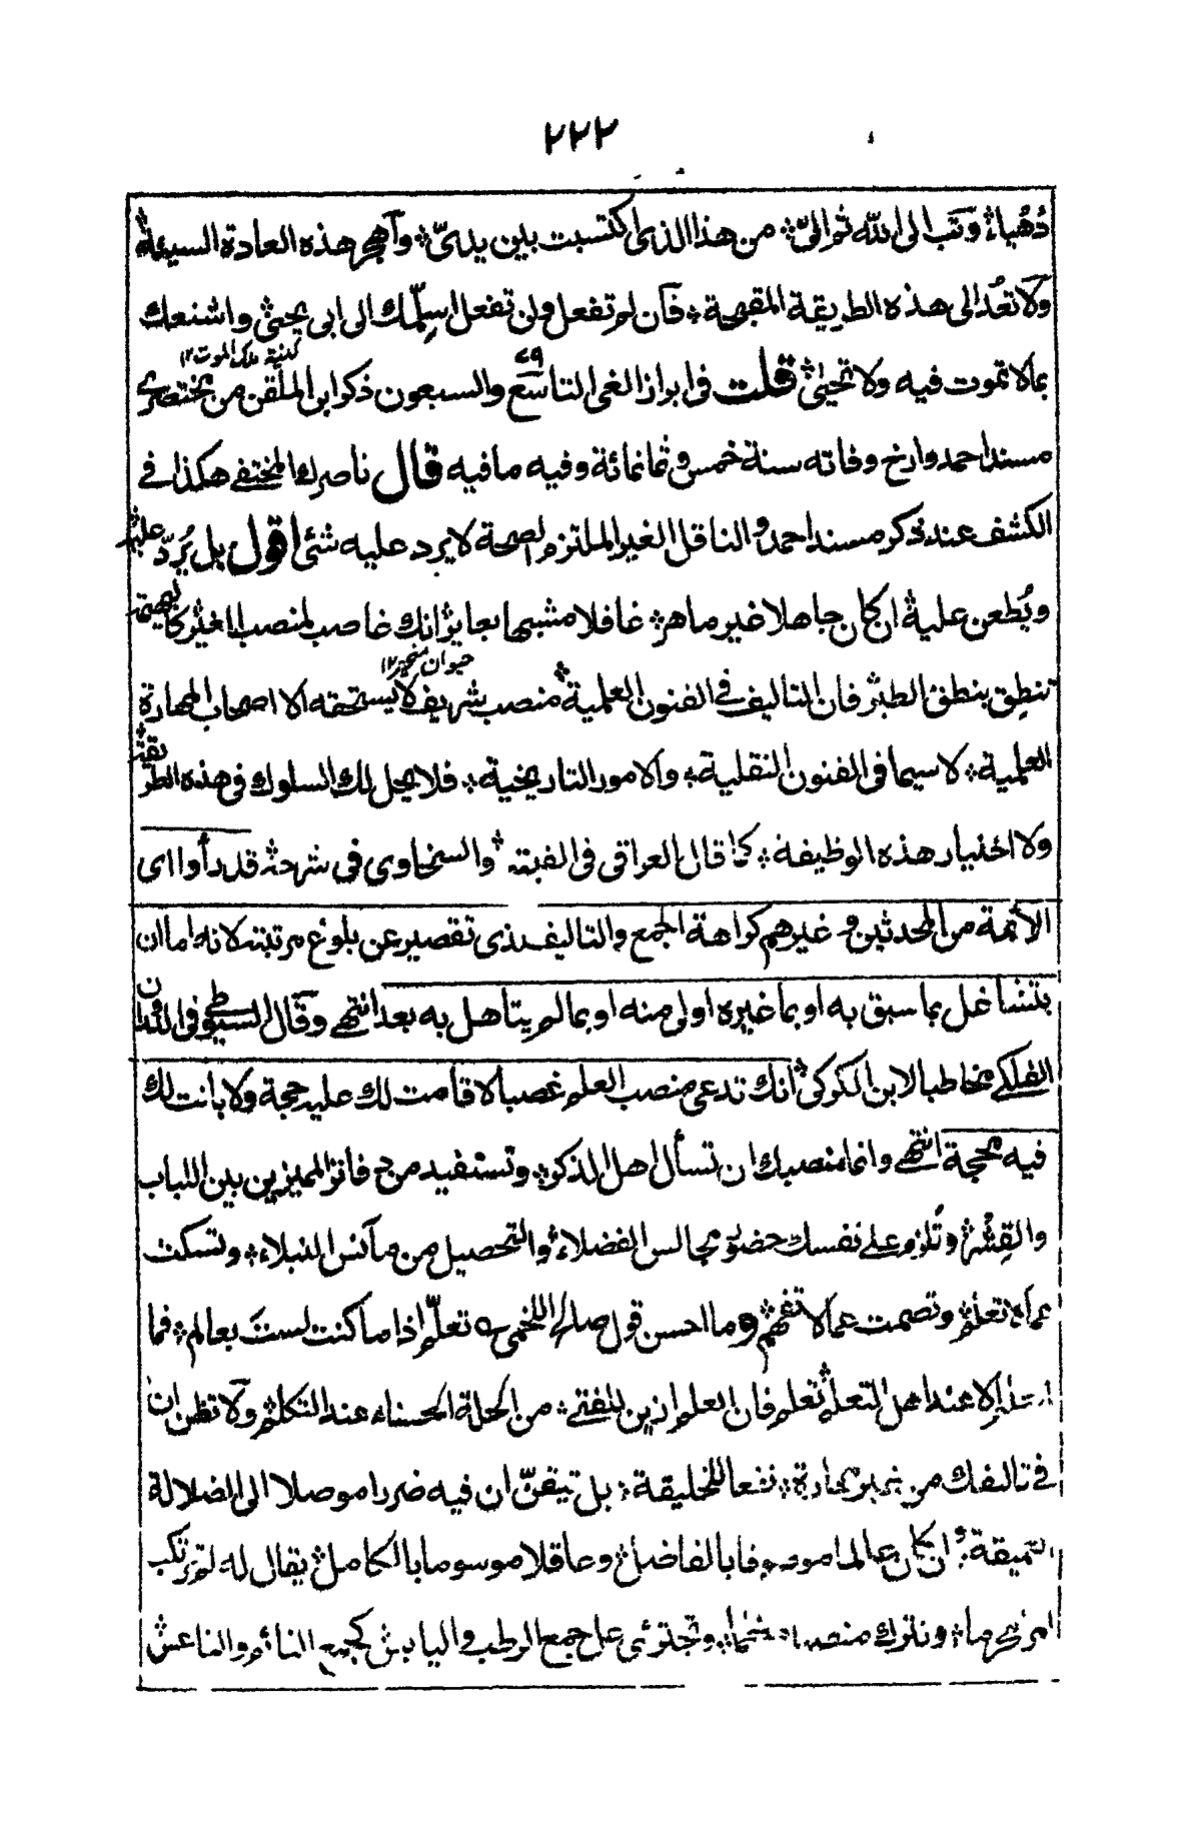 ٢٢٢
ذهباء وتب الى الله ثم الىّ من هذا الذى اكتسبت بين يدىّ واهجر هذه العادة السيئة
ولا تعُد الى هذه الطريقة المقبحة فان لم تفعل ولن تفعل اسلّمك الى ابى يحيى واشنعك
كنية ملك الموت ١٢
بما لا تموت فيه ولا تحيى قلت فى ابراز الغى التاسع ٧٩ والسبعون ذكر ابن الملقن من مختصرى
مسند احمد وارخ وفاته سنة خمس وثمانمائة وفيه ما فيه قال ناصرك المختفى هكذا فى
الكشف عند ذكر مسند احمد والناقل الغير الملتزم لصحة لا يرد عليه شئ اقول بل يُردّ عليه
ويُطعن عليه ان كان جاهلا غير ماهر غافلا متشبها بعابر انك غاصب لمنصب الغير كبهيمة
حيوان ١٢
تنطق بنطق الطير فان التاليف فى الفنون العلمية منصب شريف لا يستحقه الا اصحاب المهارة
العلمية لا سيما فى الفنون النقلية والامور التاريخية فلا يحل لك السلوك فى هذه الطريقة
ولا اختيار هذه الوظيفة كما قال العراقى فى الفيته والسخاوى فى شرحه قد رأوا اى
الأئمة من المحدثين وغيرهم كراهة الجمع والتاليف لذى تقصير عن بلوغ مرتبته لانه اما ان
يتشاغل بما سبق به او بما غيره اولى منه او بما لم يتأهل به بعد انتهى وقال السيوطى فى الدوران
الفلكى مخاطبا لابن الكركى انك تدعى منصب العلم غصبا لا قامت لك عليه حجة ولا بانت لك
فيه محجة انتهى وانما منصبك ان تسأل اهل الذكر وتستفيد من المميزين بين اللباب
والقِشر وتُلزم على نفسك حضور مجالس الفضلاء والتحصيل من مآنس النبلاء وتسكت
عما لا تعلم وتصمت عما لا تفهم وما احسن قول صالح اللخمى تعلّم اذا ما كنت لستَ بعالم فما
العلم الا عند اهل التعلم تعلم فان العلم ازين للفتى من الحلة الحسناء عند التكلم ولا تظن ان
فى تاليفك من غير مهارة نفعا للخليقة بل تيقنّ ان فيه ضررا موصلا الى الضلالة
العميقة وان كان عالما موصوفا بالفاضل وعاقلا موسوما بالكامل يقال له لم ترتكب
امرا كريها وتترك منصبا وتجترئ على جمع الرطب واليابس كجمع النائم والناعس